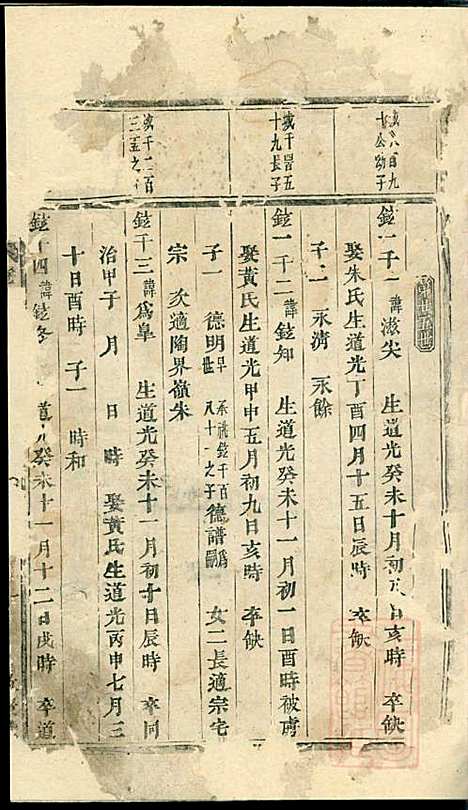 十公幼子
鋐一千一 諱滋尖 生道光癸未十月初 日亥時 卒缺
娶朱氏生道光丁酉四月十五日辰時 卒缺
子二 永清 永餘
十九長子
鋐一千二 諱鋐知 生道光癸未十一月初一日酉時被虜
娶黃氏生道光甲申五月初九日亥時 卒缺
子一 德明早世 承祧鋐千百八十一之子德譜爲嗣 女二長適宗宅
宗 次適陶界嶺朱
鋐千三 諱爲皐 生道光癸未十一月初十日辰時 卒同
治甲子 月 日 時 娶黃氏生道光丙申七月三
十日酉時 子一 時和
鋐千四 諱鋐 道光癸未十一月十二日戌時 卒道